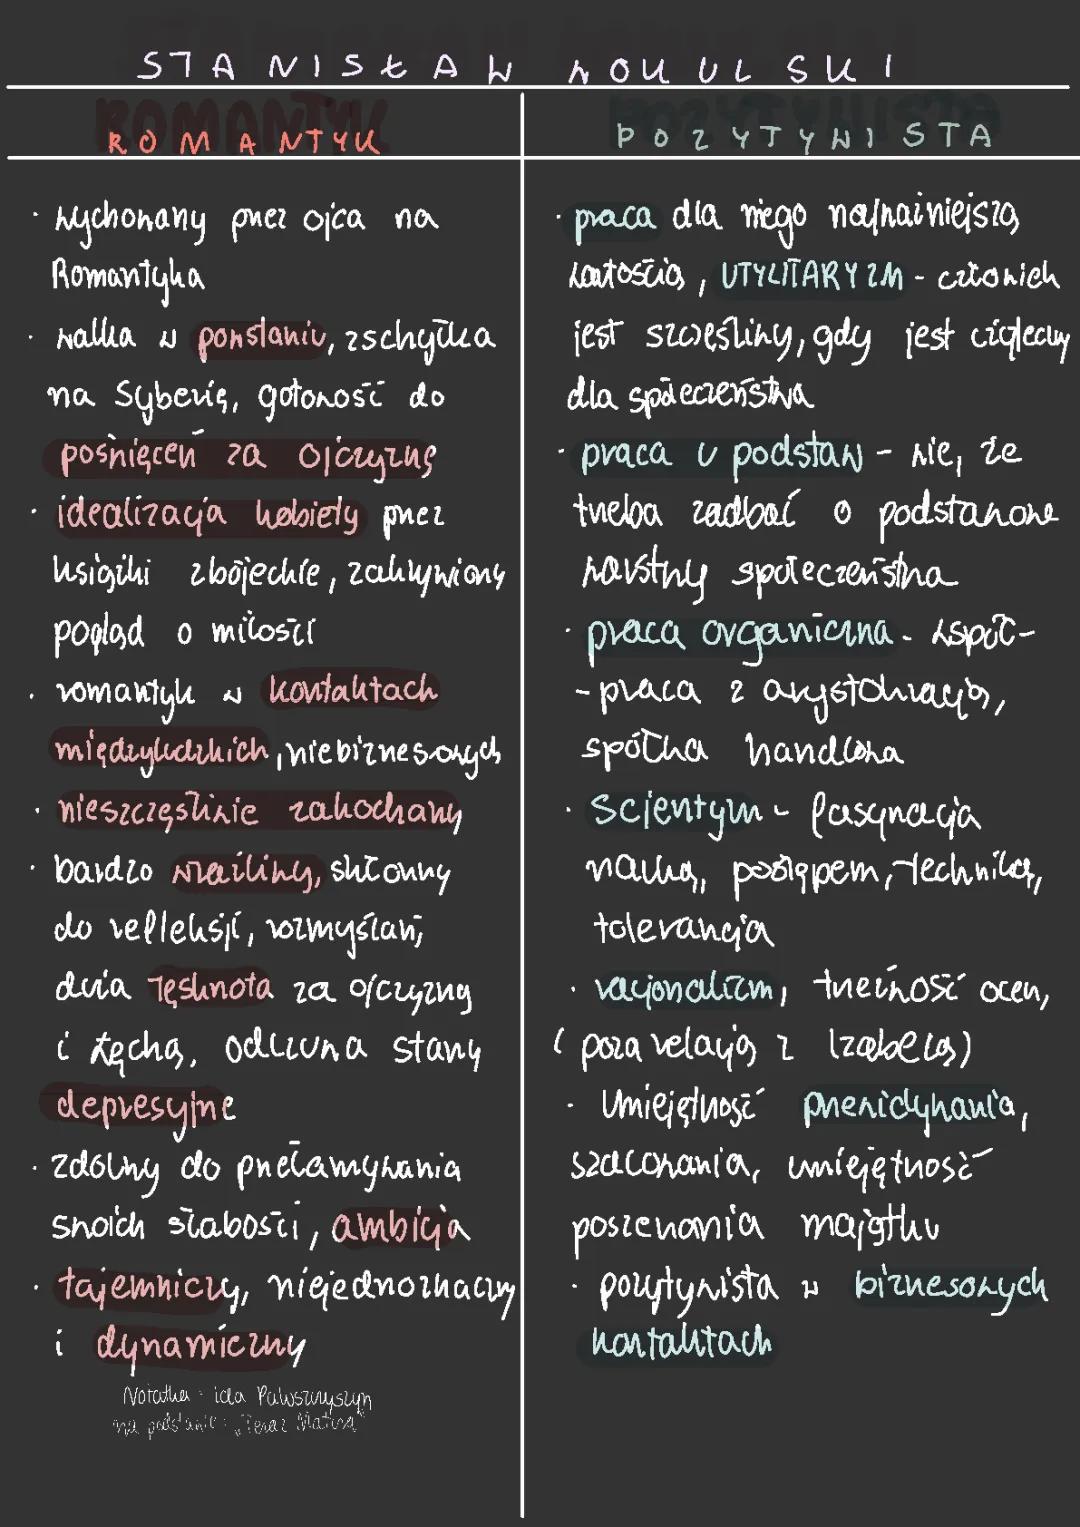 STANISŁAW WOKULSKI
ROMANTYK
· wychowany przez ojca na
Romantyka
· walka w powstaniu, zschyłka
na Syberię, gotowość do
poświęceń za Ojczyznę
· idealizacja kobiety przez
książki zbójeckie, zakrywiony
pogląd o miłości
· romantyk w kontaktach
międzyludzkich, niebiznesowych
· nieszczęśliwie zakochany
· bardzo wrażliwy, skłonny
do refleksji, rozmyślań,
duża tęsknota za ojczyzną
i Łęcką, odczuwa stany
depresyjne
· zdolny do przełamywania
swoich słabości, ambicja
· tajemniczy, niejednoznaczny
i dynamiczny
Notatka: Iga
na podstawie: „Teraz Matura"
POZYTYWISTA
· praca dla niego najważniejszą
wartością, UTYLITARYZM - człowiek
jest szczęśliwy, gdy jest użyteczny
dla społeczeństwa
· praca u podstaw - wie, że
trzeba zadbać o podstawowe
warstwy społeczeństwa
· praca organiczna - współ-
-praca z arystokracją,
spółka handlowa
· Scjentyzm - fascynacja
nauką, postępem, techniką,
tolerancja
· racjonalizm, trzeźwość ocen,
(poza relacją z Izabelą)
· Umiejętność przewidywania,
szacowania, umiejętność
poszerzania majątku
· pozytywista w biznesowych
kontaktach